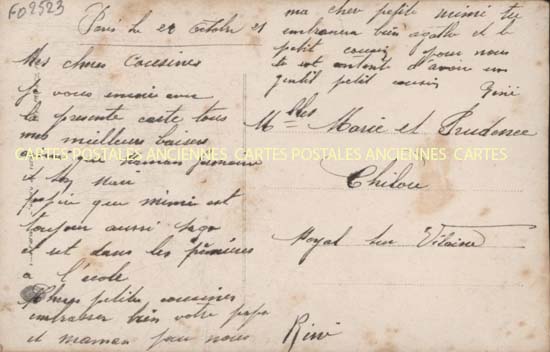 F02523
Paris le 22 octobre 21
Mes chères Cousines
Je vous envoie avec
la présente carte tous
mes meilleurs baisers
maman
et
que mimi est
toujour aussi sage
il est dans les premiers
a l'école
Chères petites cousines
embrasser bien votre papa
et maman pour nous
René
ma cher petite mimi tu
embrassera bien agathe et le
petit cousin pour nous
tu est content d'avoir un
gentil petit cousin
René
Mlles Marie et Prudence
Chilou
Noyal sur Vilaine
CARTES POSTALES ANCIENNES CARTES POSTALES ANCIENNES CARTES